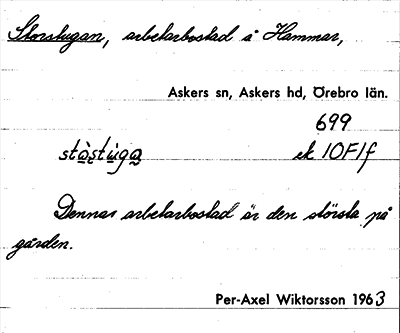 Storstugan, arbetarbostad å Hammar,
Askers sn, Askers hd, Örebro län.
699
ståstuga ek 10F1f
Denna arbetarbostad är den största på
gården.
Per-Axel Wiktorsson 1963